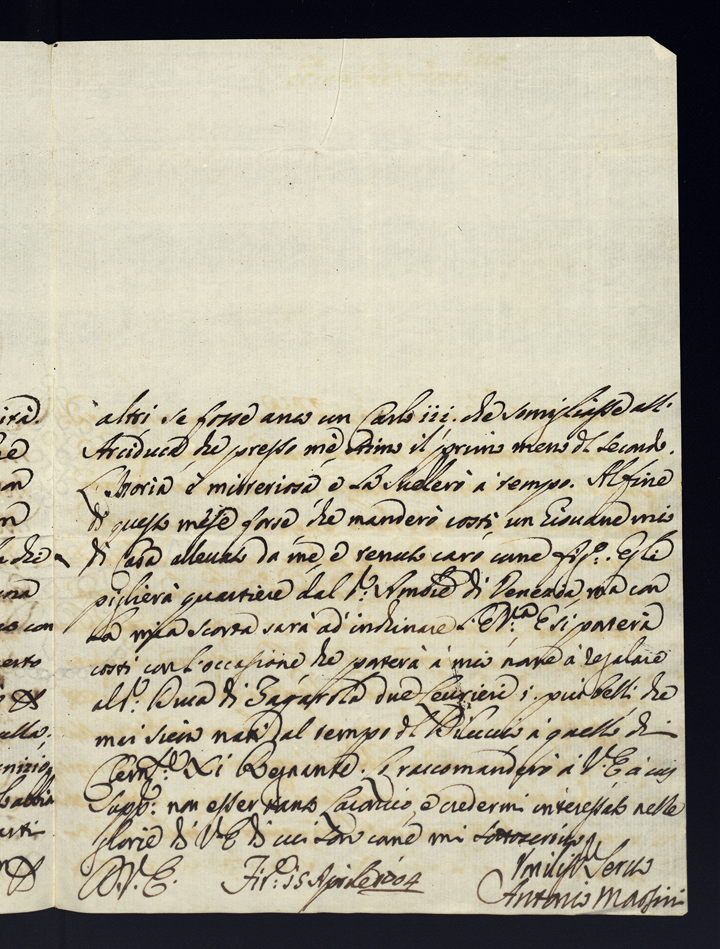 altri se fosse anco un Carlo iii. che somigliasse all:
Arciduca che presso mè stimo il primo meno del secondo.
L'Istoria è misteriosa e La svellerò à tempo. Al fine
di questo mese forse che manderò costì un Giouane mio
di Casa alleuato da mè e tenuto caro come fig:º. Egli
piglierà quartiere dal S:r Amb:re di Venezia ma con
La mia scorta sarà ad inchinare l'E V:ra E si porterà
costì con l'occasione che porterà à mio nome à regalare
al S:r Duca di Zagarola due Leuriere i più belli che
mai sieno nati dal tempo di à quello di
Clem:te Xi Regnante. raccomanderò à V E à cui
Supp:co non esser tanto e credermi interessato nelle
glorie di V E di cui son come mi sottoscriuo
D. V. E. Fir:e 15 Aprile 1704
Vmiliss:o Seruo
Antonio
ità.
he
on
n
che
ona
con
erto
ulla.
nizio
habbia
arti